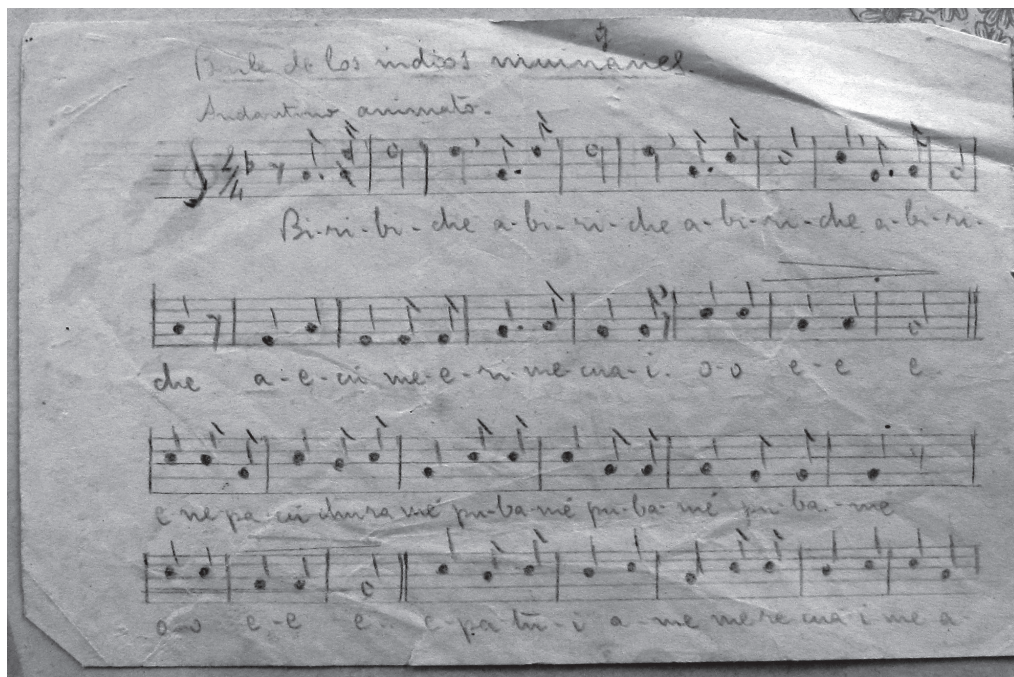 Baile de los indios muinanes.
Andantino animato.
Bi-ri-bi-che a-bi-ri-che a-bi-ri-che a-bi-ri-
che a-e-cui me-e-ri-me-cua-i. o-o e-e e.
e ne pa cui chura mé pu-ba-mé pu-ba-mé pu-ba-me
o-o e-e e.. e-pa-tü-i a-me me re cua i me a-